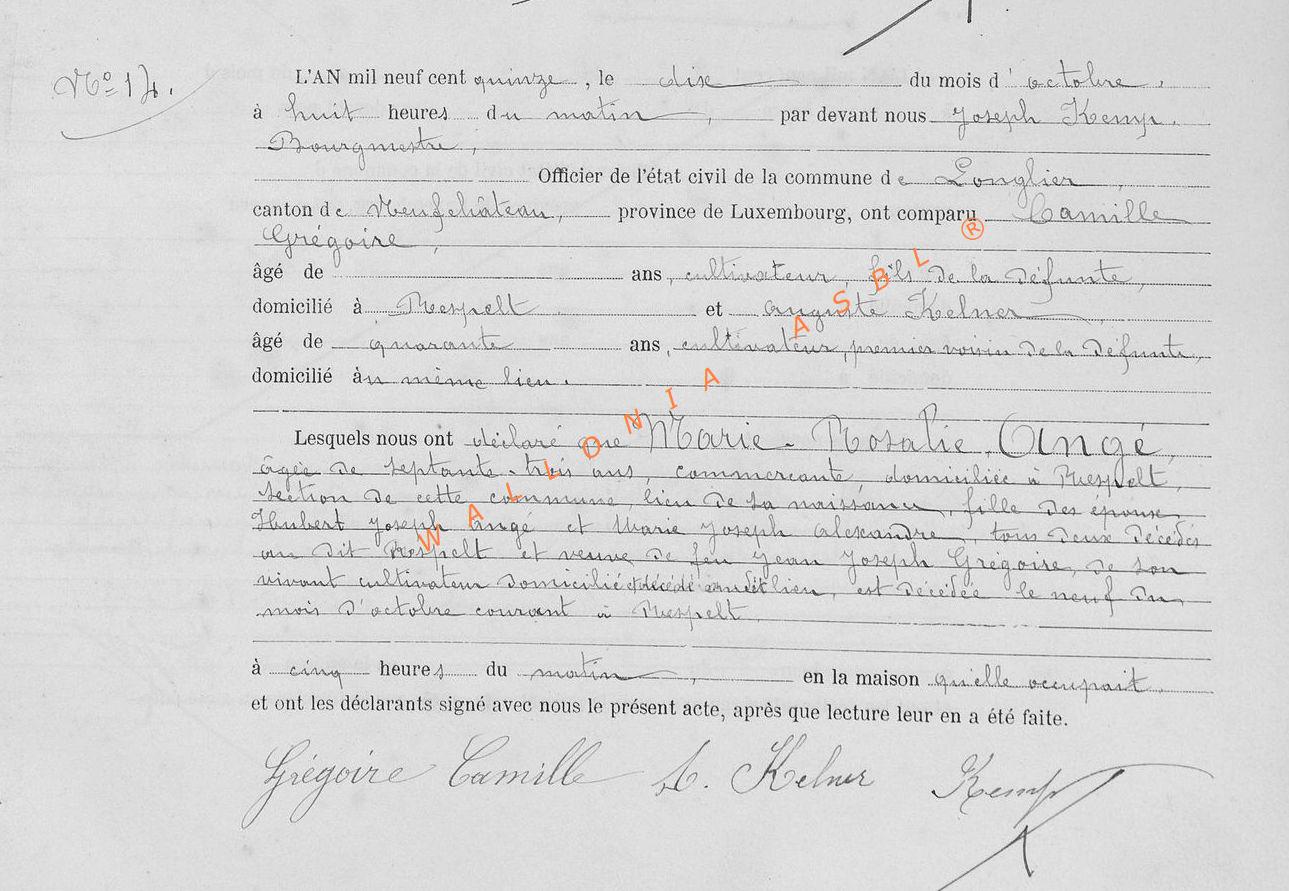 N° 14.
L'AN mil neuf cent quinze, le dix du mois d'octobre,
à huit heures du matin, par devant nous Joseph Kemp,
Bourgmestre,
Officier de l'état civil de la commune de Longlier,
canton de Neufchâteau, province de Luxembourg, ont comparu Camille
Grégoire,
âgé de ans, cultivateur, fils de la défunte,
domicilié à Respelt et Auguste Kelner,
âgé de quarante ans, cultivateur, premier voisin de la défunte,
domicilié au même lieu.
Lesquels nous ont déclaré que Marie-Rosalie Angé,
âgée de septante-trois ans, commerçante, domiciliée à Respelt,
section de cette commune, lieu de sa naissance, fille des époux,
Hubert Joseph Angé et Marie Joseph Alexandre, tous deux décédés
au dit Respelt et veuve de feu Jean Joseph Grégoire, de son
vivant cultivateur domicilié et décédé audit lieu, est décédée le neuf du
mois d'octobre courant à Respelt
à cinq heures du matin, en la maison qu'elle occupait.
et ont les déclarants signé avec nous le présent acte, après que lecture leur en a été faite.
Grégoire Camille A. Kelner Kemp
WALLONIA ASBL ®